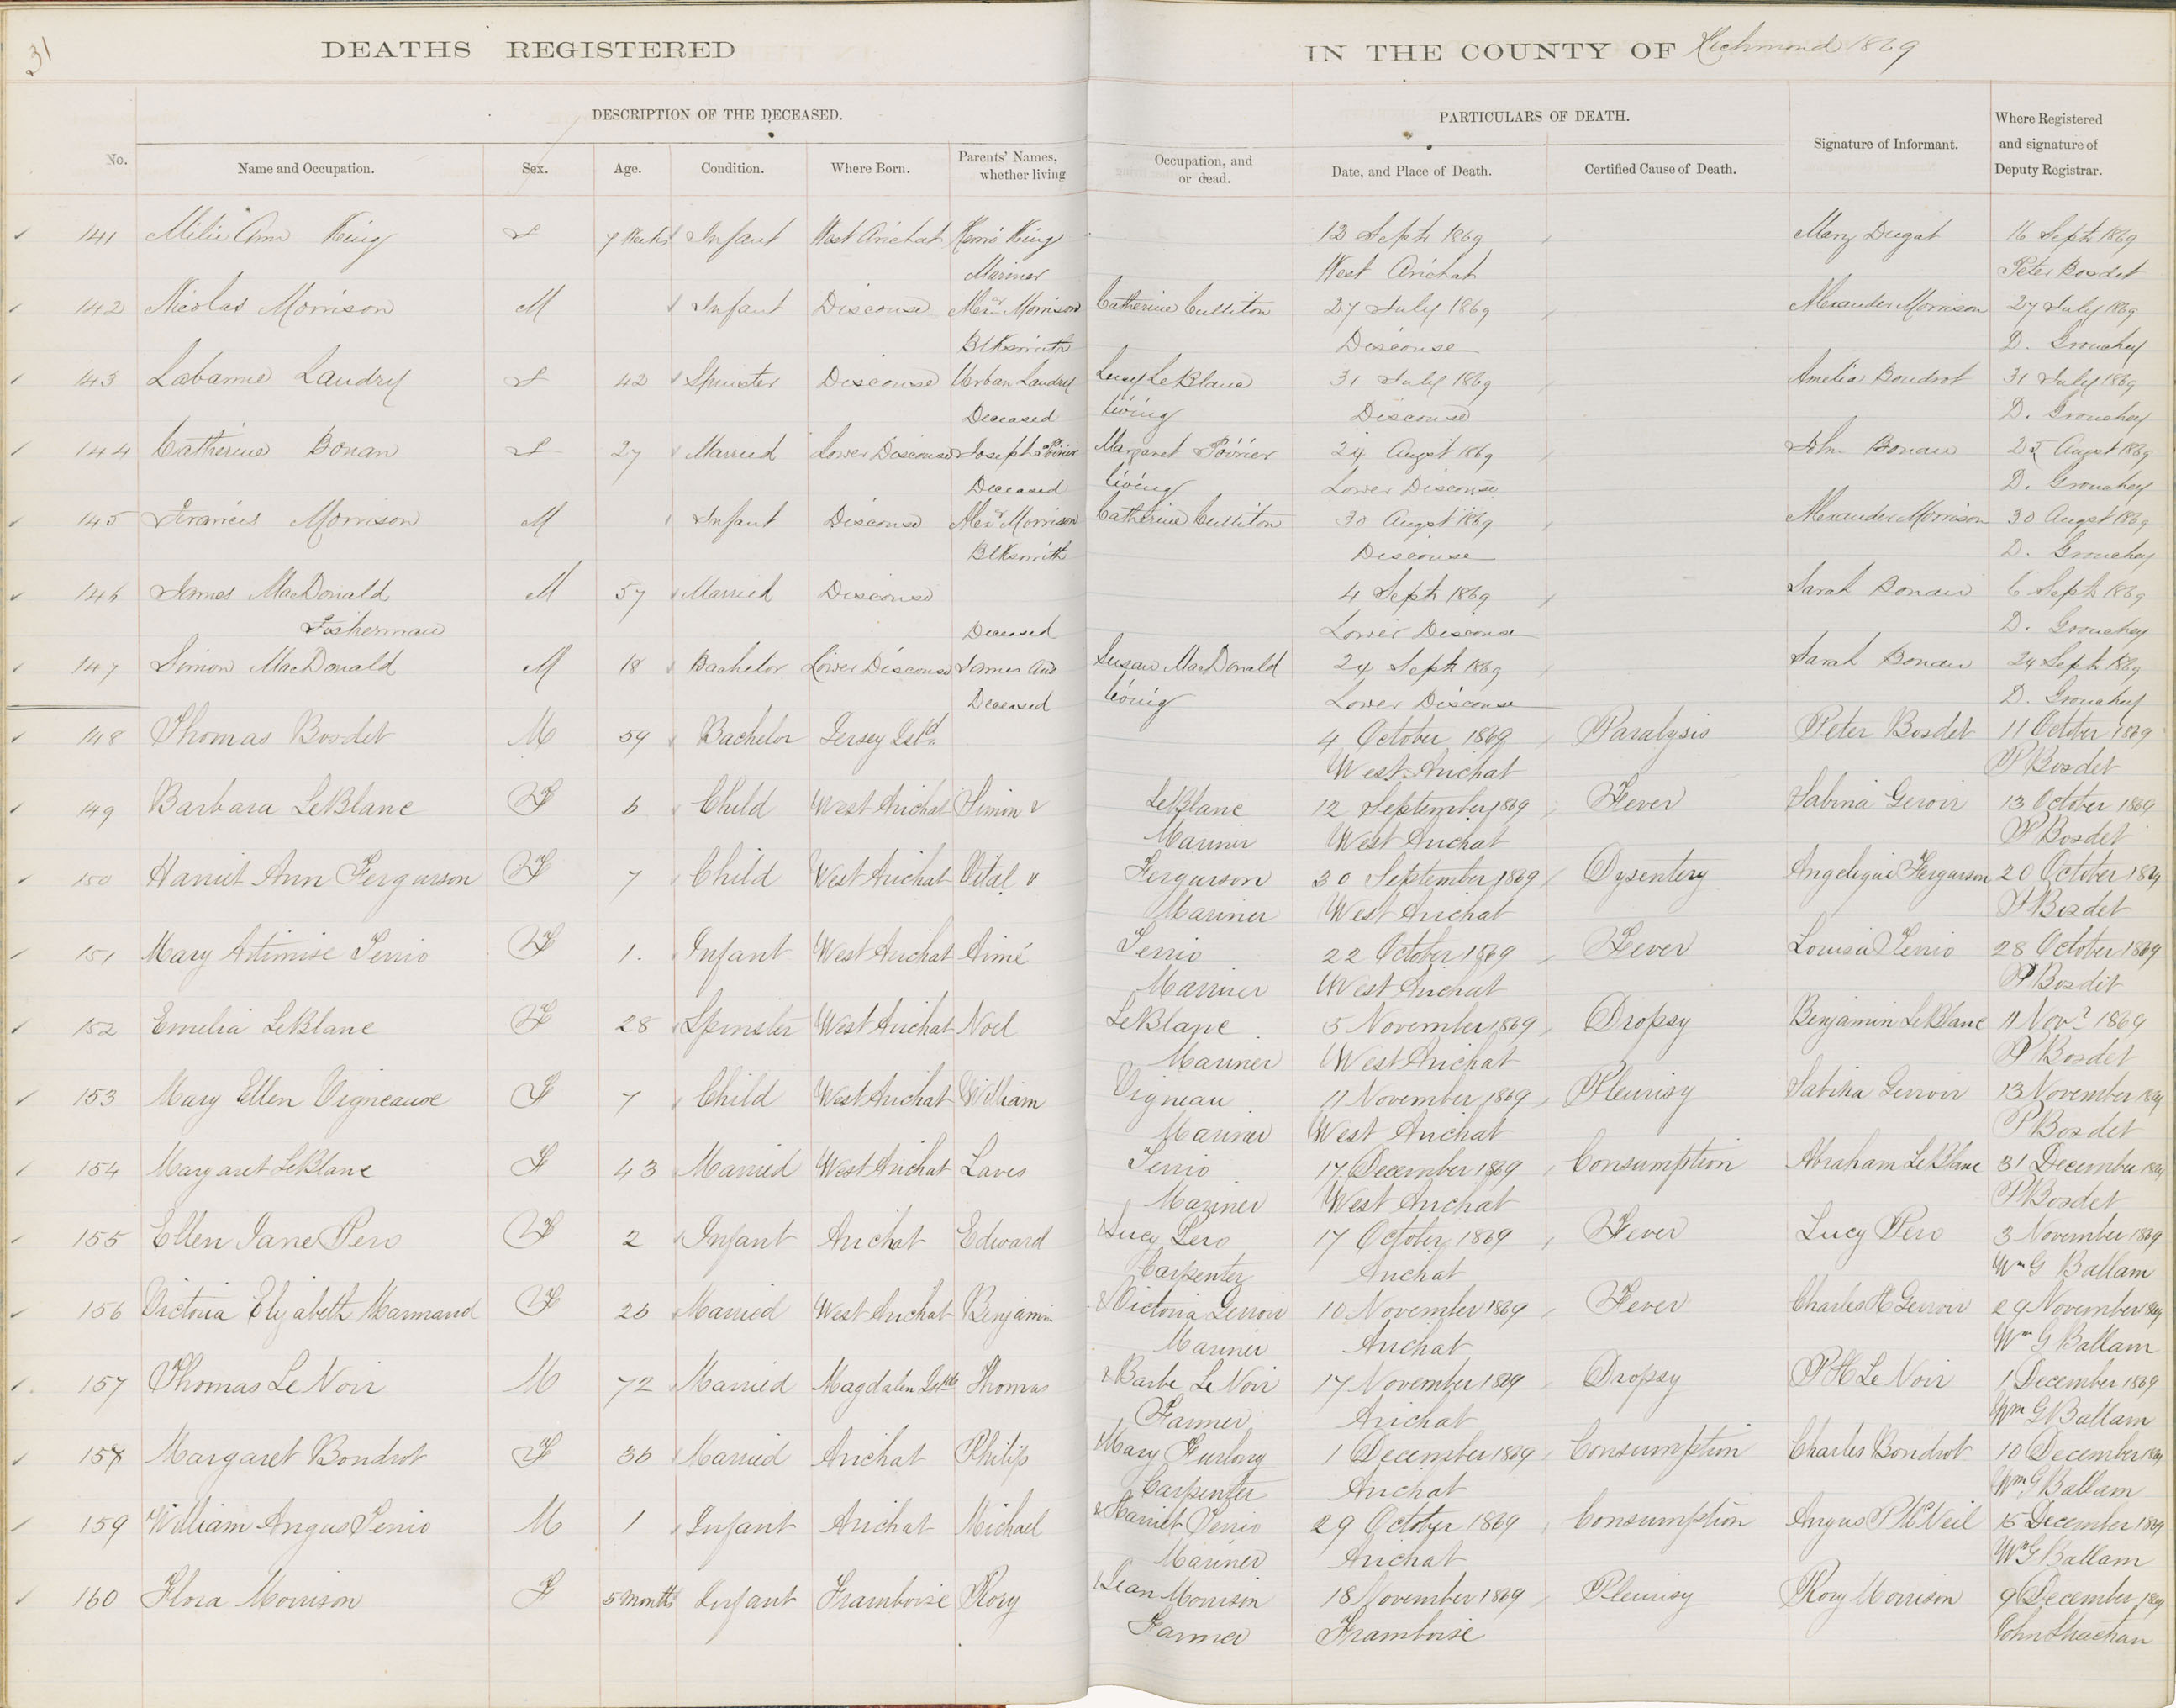 31
DEATHS REGISTERED IN THE COUNTY OF Richmond 1869
DESCRIPTION OF THE DECEASED. PARTICULARS OF DEATH.
No. Name and Occupation. Sex. Age. Condition. Where Born. Parents' Names, whether living Occupation, and or dead. Date, and Place of Death. Certified Cause of Death. Signature of Informant. Where Registered and signature of Deputy Registrar.
141 Ann King F 7 Weeks Infant West Arichat King 12 Sept 1869 Mary Dugat 16 Sept 1869
Mariner West Arichat Peter Bosdet
142 Nicolas Morrison M Infant Discouse Alexr Morrison Catherine Culliton 27 July 1869 Alexander Morrison 27 July 1869
Blksmith Discouse D. Grouchey
143 Labanne Landry F 42 Spinster Discouse Urban Landry Lucy LeBlanc 31 July 1869 Amelia Boudrot 31 July 1869
Deceased living Discouse D. Grouchey
144 Catherine Bonan F 27 Married Lower Discouse Joseph Poirier Margaret Poirier 24 Augst 1869 John Bonan 25 Augst 1869
Deceased living Lower Discouse D. Grouchey
145 Francies Morrison M Infant Discouse Alexr Morrison Catherine Culliton 30 Augst 1869 Alexander Morrison 30 Augst 1869
Blksmith Discouse D. Grouchey
146 James MacDonald M 57 Married Discouse 4 Sept 1869 Sarah Bonan 6 Sept 1869
Fisherman Deceased Lower Discouse D. Grouchey
147 Simon MacDonald M 18 Bachelor Lower Discouse James and Susan MacDonald 24 Sept 1869 Sarah Bonan 24 Sept 1869
Deceased living Lower Discouse D. Grouchey
148 Thomas Bosdet M 59 Bachelor Jersey Isld 4 October 1869 Paralysis Peter Bosdet 11 October 1869
West Arichat P Bosdet
149 Barbara LeBlanc F 6 Child West Arichat Simon LeBlanc 12 September 1869 Fever Sabina Gerroir 13 October 1869
Mariner West Arichat P Bosdet
150 Harriet Ann Fergurson F 7 Child West Arichat Vital Fergurson 30 September 1869 Dysentery Angelique Fergurson 20 October 1869
Mariner West Arichat P Bosdet
151 Mary Artimise Terrio F 1. Infant West Arichat Aimé Terrio 22 October 1869 Fever Louisa Terrio 28 October 1869
Mariner West Arichat P Bosdet
152 Emelia LeBlanc F 28 Spinster West Arichat Noel LeBlanc 5 November 1869 Dropsy Benjamin LeBlanc 11 Novr 1869
Mariner West Arichat P Bosdet
153 Mary Ellen Vigneauxe F 7 Child West Arichat William Vigneau 11 November 1869 Pleurisy Sabina Gerroir 13 November 1869
Mariner West Arichat P Bosdet
154 Margaret LeBlanc F 43 Married West Arichat Laves Terrio 17 December 1869 Consumption Abraham LeBlanc 31 December 1869
Mariner West Arichat P Bosdet
155 Ellen Jane Pero F 2 Infant Arichat Edward & Lucy Pero 17 October 1869 Fever Lucy Pero 3 November 1869
Carpenter Arichat Wm G Ballam
156 Victoria Elizabeth Marmaud F 25 Married West Arichat Benjamin & Victoria Gerroir 10 November 1869 Fever Charles H Gerroir 29 November 1869
Mariner Arichat Wm G Ballam
157 Thomas Le Noir M 72 Married Magdalen Islds Thomas & Barbe Le Noir 17 November 1869 Dropsy P H Le Noir 1 December 1869
Farmer Arichat Wm G Ballam
158 Margaret Boudrot F 36 Married Arichat Philip & Mary Furlong 1 December 1869 Consumption Charles Boudrot 10 December 1869
Carpenter Arichat Wm G Ballam
159 William Angus Terrio M 1 Infant Arichat Michael & Harriet Terrio 29 October 1869 Consumption Angus P McNeil 15 December 1869
Mariner Arichat Wm G Ballam
160 Flora Morrison F 5 Months Infant Framboise Rory & Jean Morrison 18 November 1869 Pleurisy Rory Morrison 9 December 1869
Farmer Framboise John Strachan